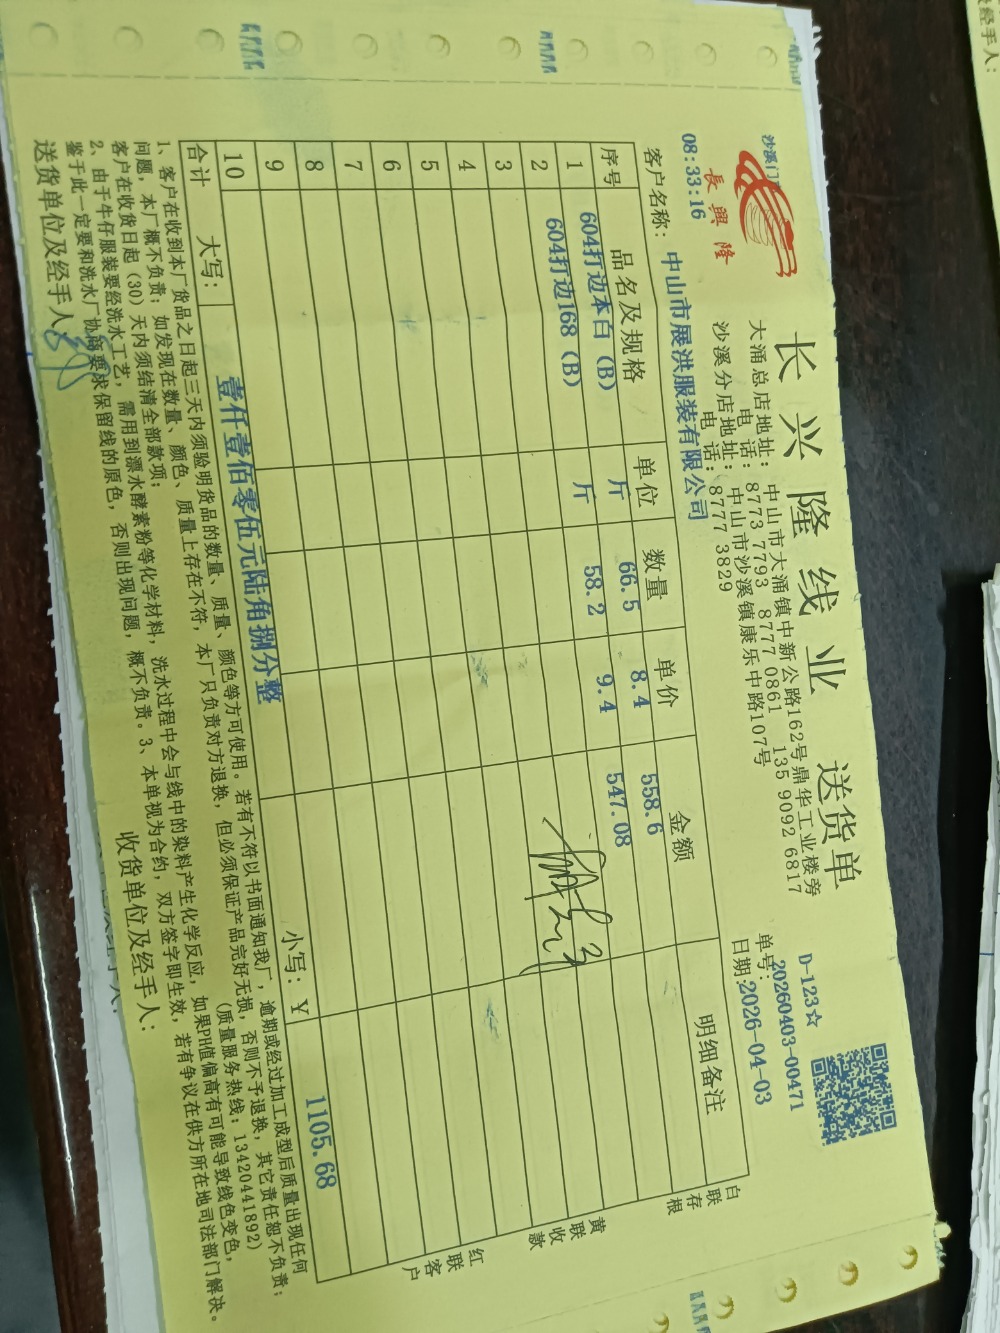 沙溪门
長興隆
长兴隆线业 送货单
大涌总店地址：中山市大涌镇中新公路162号鼎华工业楼旁
电话：8773 7793 8777 0861 135 9092 6817
沙溪分店地址：中山市沙溪镇康乐中路107号
电话：8777 3829
D-123☆
单号：20260403-00471
日期:2026-04-03
08:33:16
客户名称：中山市展洪服装有限公司
序号 品名及规格 单位 数量 单价 金额 明细备注
1 604打边本白（B） 斤 66.5 8.4 558.6
2 604打边168（B） 斤 58.2 9.4 547.08
3
4
5
6
7
8
9
10
合计 大写：壹仟壹佰零伍元陆角捌分整 小写：¥ 1105.68
1、客户在收到本厂货品之日起三天内须验明货品的数量、质量、颜色等方可使用。若有不符以书面通知我厂，逾期或经过加工成型后质量出现任何
问题，本厂概不负责；如发现在数量、颜色、质量上存在不符，本厂只负责对方退换，但必须保证产品完好无损，否则不予退换，其它责任恕不负责；
客户在收货日起（30）天内须结清全部款项；（质量服务热线：13420441892）
2、由于牛仔服装要经洗水工艺，需用到漂水酵素粉等化学材料，洗水过程中会与线中的染料产生化学反应，如果PH值偏高有可能导致线色变色，
鉴于此一定要和洗水厂协商要求保留线的原色，否则出现问题，概不负责。3、本单视为合约，双方签字即生效，若有争议在供方所在地司法部门解决。
送货单位及经手人：
收货单位及经手人：
白联存根
黄联收款
红联客户
经手人：